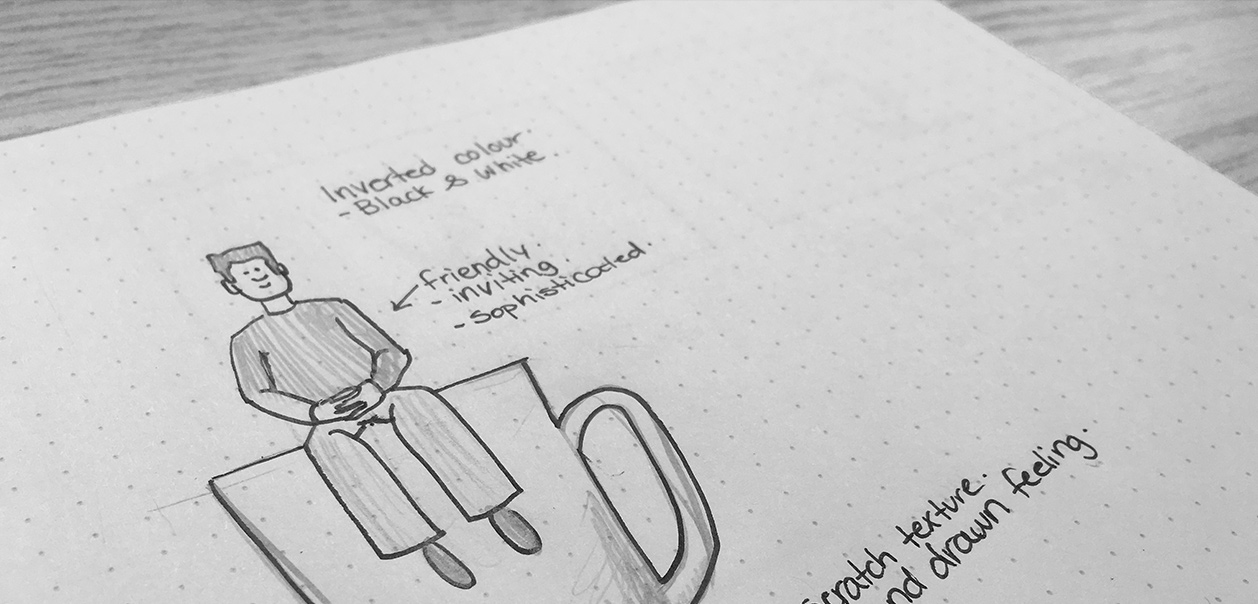 Inverted colour
- Black & White.
friendly.
- inviting.
- Sophisticated.
Scratch texture.
drawn feeling.